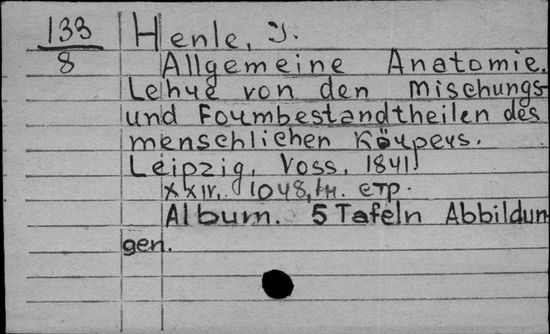 133 Henle, J.
8 Allgemeine Anatomie.
Lehre von den Mischungs-
und Formbestandtheilen des
menschlichen Körpers.
Leipzig, Voss, 1841
XXIV, 1048, стр.
Album. 5 Tafeln Abbildun
gen.